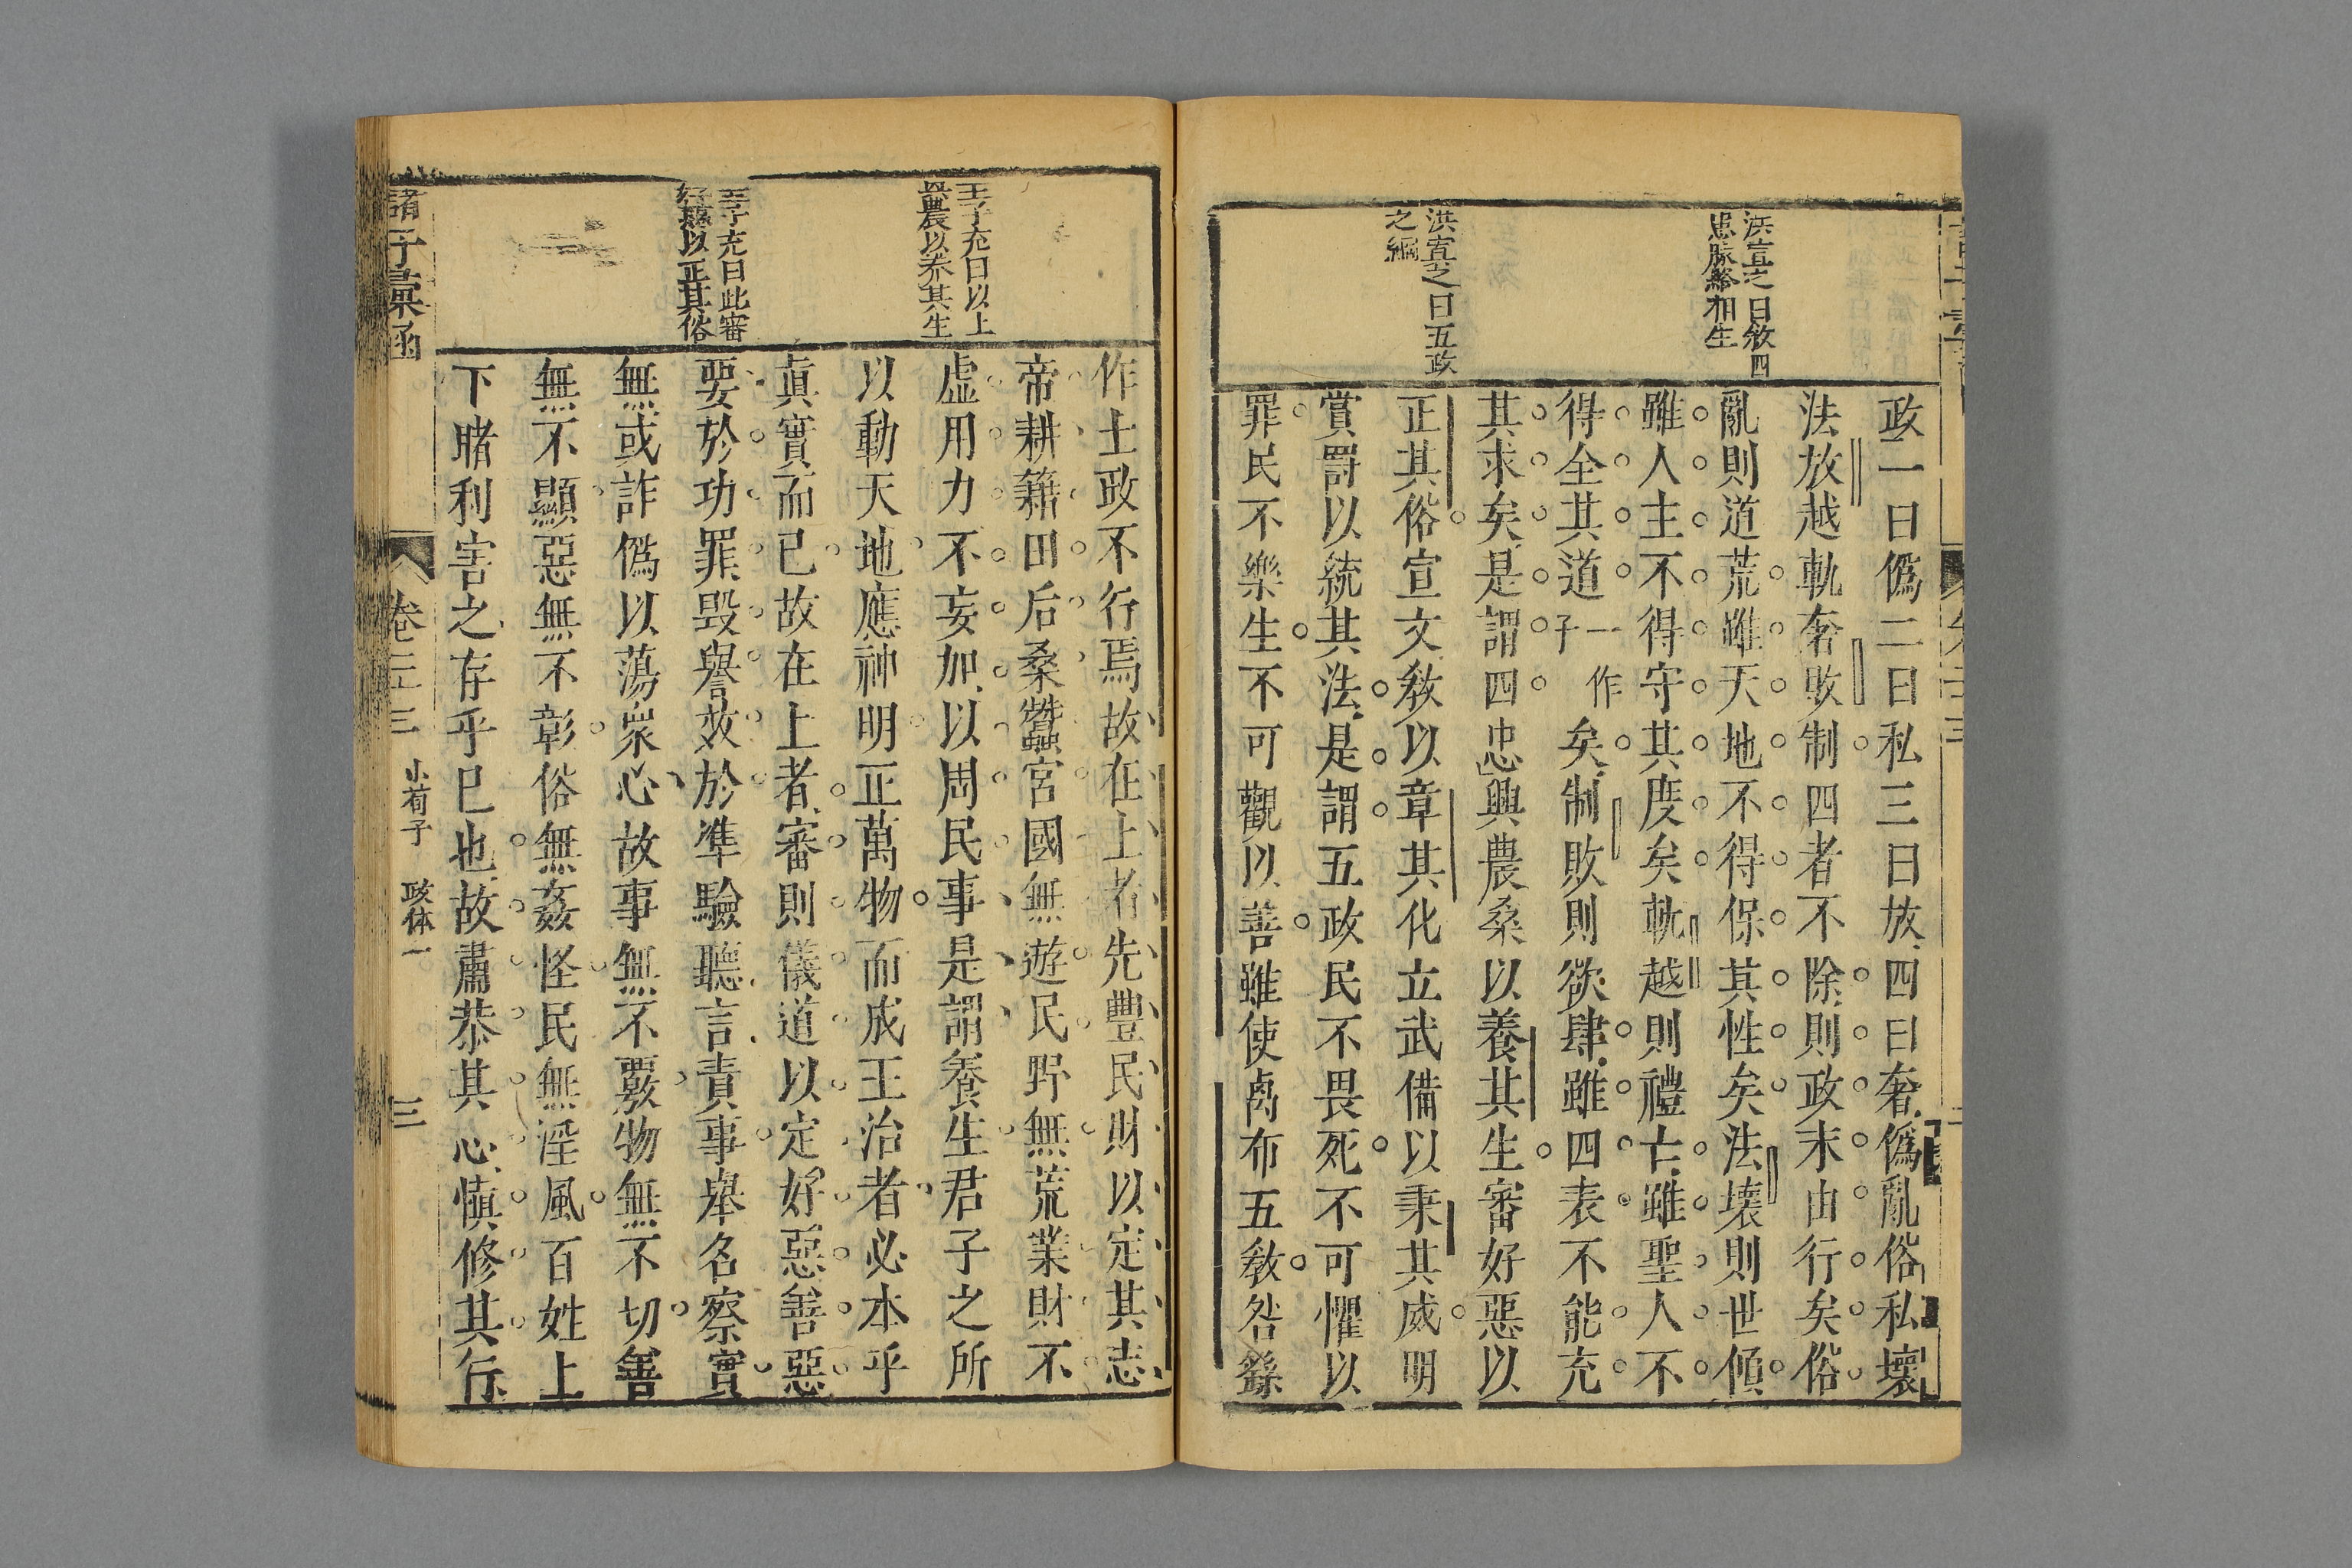 洪宣之曰敘四
患脉絡相生
洪宣之曰五政
之綱
政一曰僞二曰私三曰放四曰奢僞亂俗私壞
法放越軌奢敗制四者不除則政末由行矣俗
亂則道荒雖天地不得保其性矣法壞則世傾
雖人主不得守其度矣軌越則禮亡雖聖人不
得全其道一作子矣制敗則欲肆雖四表不能充
其求矣是謂四患興農桑以養其生審好惡以
正其俗宣文教以章其化立武備以秉其威明
賞罰以統其法是謂五政民不畏死不可懼以
罪民不樂生不可觀以善雖使卨布五教咎繇
王子充曰以上
興農以养其生
王子充曰此審
好惡以正其俗
作士政不行焉故在上者先豐民財以定其志
帝耕籍田后桑蠶宮國無遊民野無荒業財不
虛用力不妄加以周民事是謂養生君子之所
以動天地應神明正萬物而成王治者必本乎
眞實而已故在上者審則儀道以定好惡善惡
要於功罪毀譽效於準驗聽言責事舉名察實
無或詐僞以蕩衆心故事無不覈物無不切善
無不顯惡無不彰俗無姦怪民無淫風百姓上
下睹利害之存乎已也故肅恭其心愼修其行
諸子彙函
小荀子
政体一
三